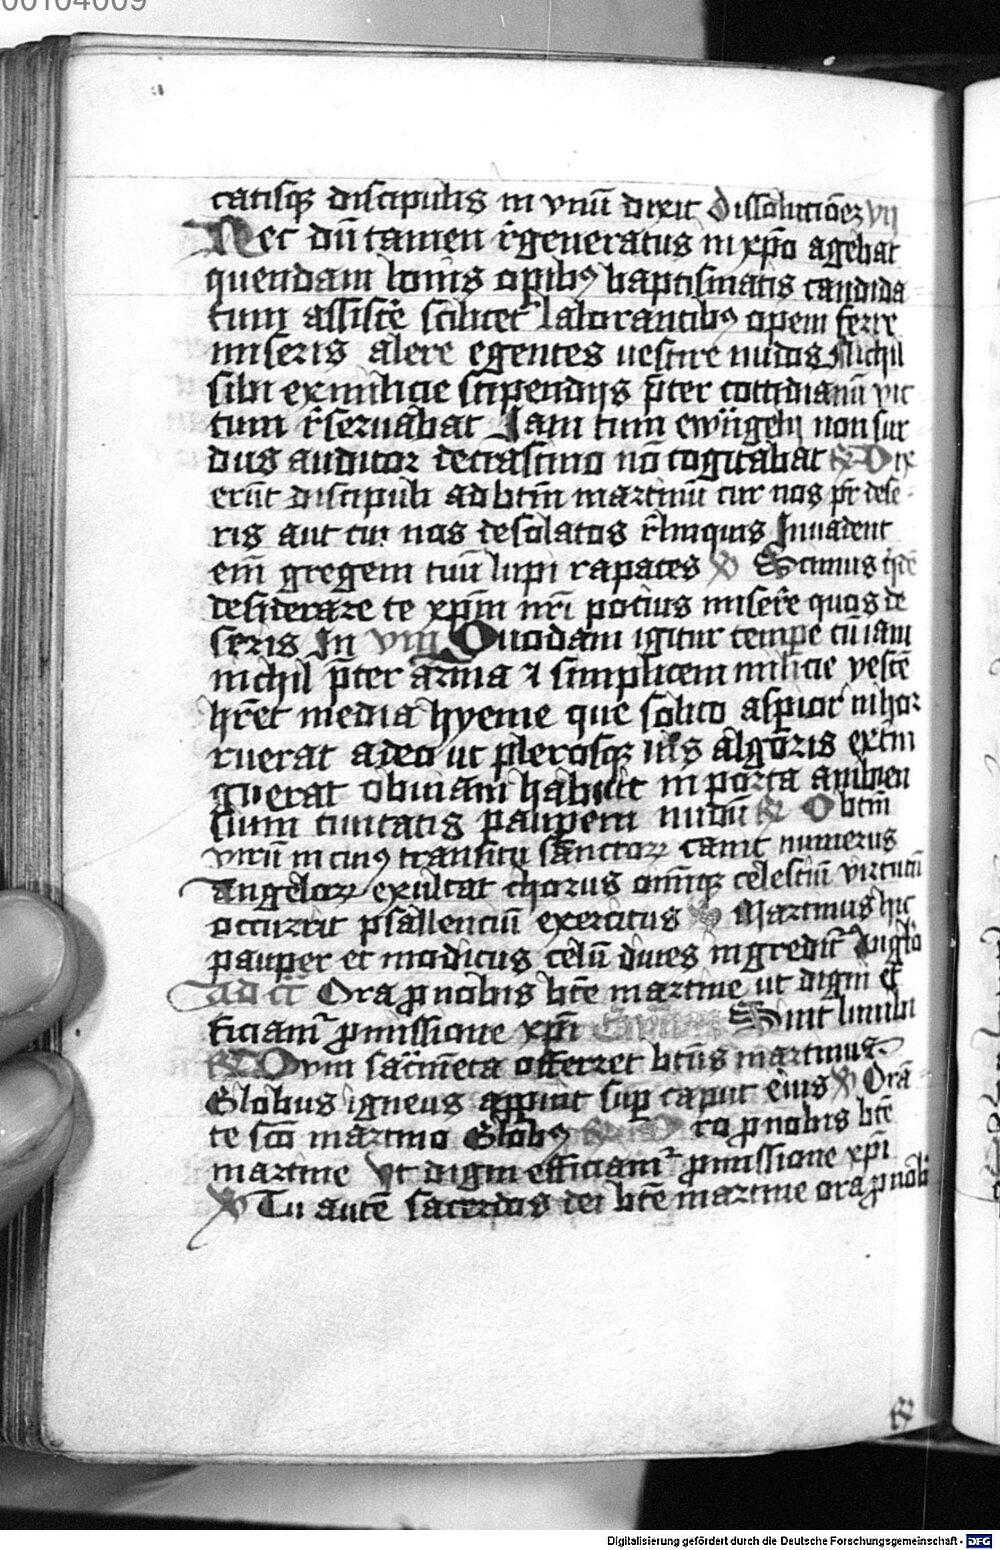 00104009
catisqꝫ discipulis in vnū dixit Dissolucioēꝫ vij
Nec dū tamen r̄generatus in xp̄o agebat
quendam bonis opibꝰ baptismatis candida
tum assistē scilicet laborantibꝰ opem ferre
miseris alere egentes uestire nudos Nichil
sibi ex milicie stipendijs p̄ter cottidianū vic
tum r̄seruabat Iam tum ewāgelij non sur
dus auditor decrastino nō cogitabat Dix
erūt discipuli ad btm̄ martinū cur nos pr̄ dese-
ris aut cui nos desolatos r̄linquis Inuadent
em̄ gregem tuū lupi rapaces Scimus qͥdē
desiderare te xpm̄ nr̄i pocius miserē quos de
seris In viij Quodam igitur tempe cū iam
nichil p̄ter arma ⁊ simplicem milicie vestē
hr̄et media hyeme que solito asp̄ior inhor
ruerat adeo ut plerosqꝫ uis algoris extin
guerat obuiam habuit in porta ambien
sium ciuitatis pauꝑem nudū O btm̄
virū in cuiꝰ transitu sanctoꝝ canit numerus
angeloꝝ exultat chorus om̄iqꝫ celestiū virtutū
occurrit psallenciū exercitus Martinus hic
pauper et modicus celū diues ingredit᷑
ad cī Ora ꝓ nobis bt̄e martine ut digni ef
ficiam᷑ ꝓmissione xpī Sint lumbi
Dum sac̄menta offerret btūs martinus
Globus igneus apparuit sup̄ caput eius Orā
te sc̄o martino Globꝰ ro ꝓ nobis bt̄e
martine Vt digni efficiam᷑ ꝓmissione xpī
Tu autē sacerdos dei bt̄e martine ora ꝓ nob̄
Digitalisierung gefördert durch die Deutsche Forschungsgemeinschaft - DFG